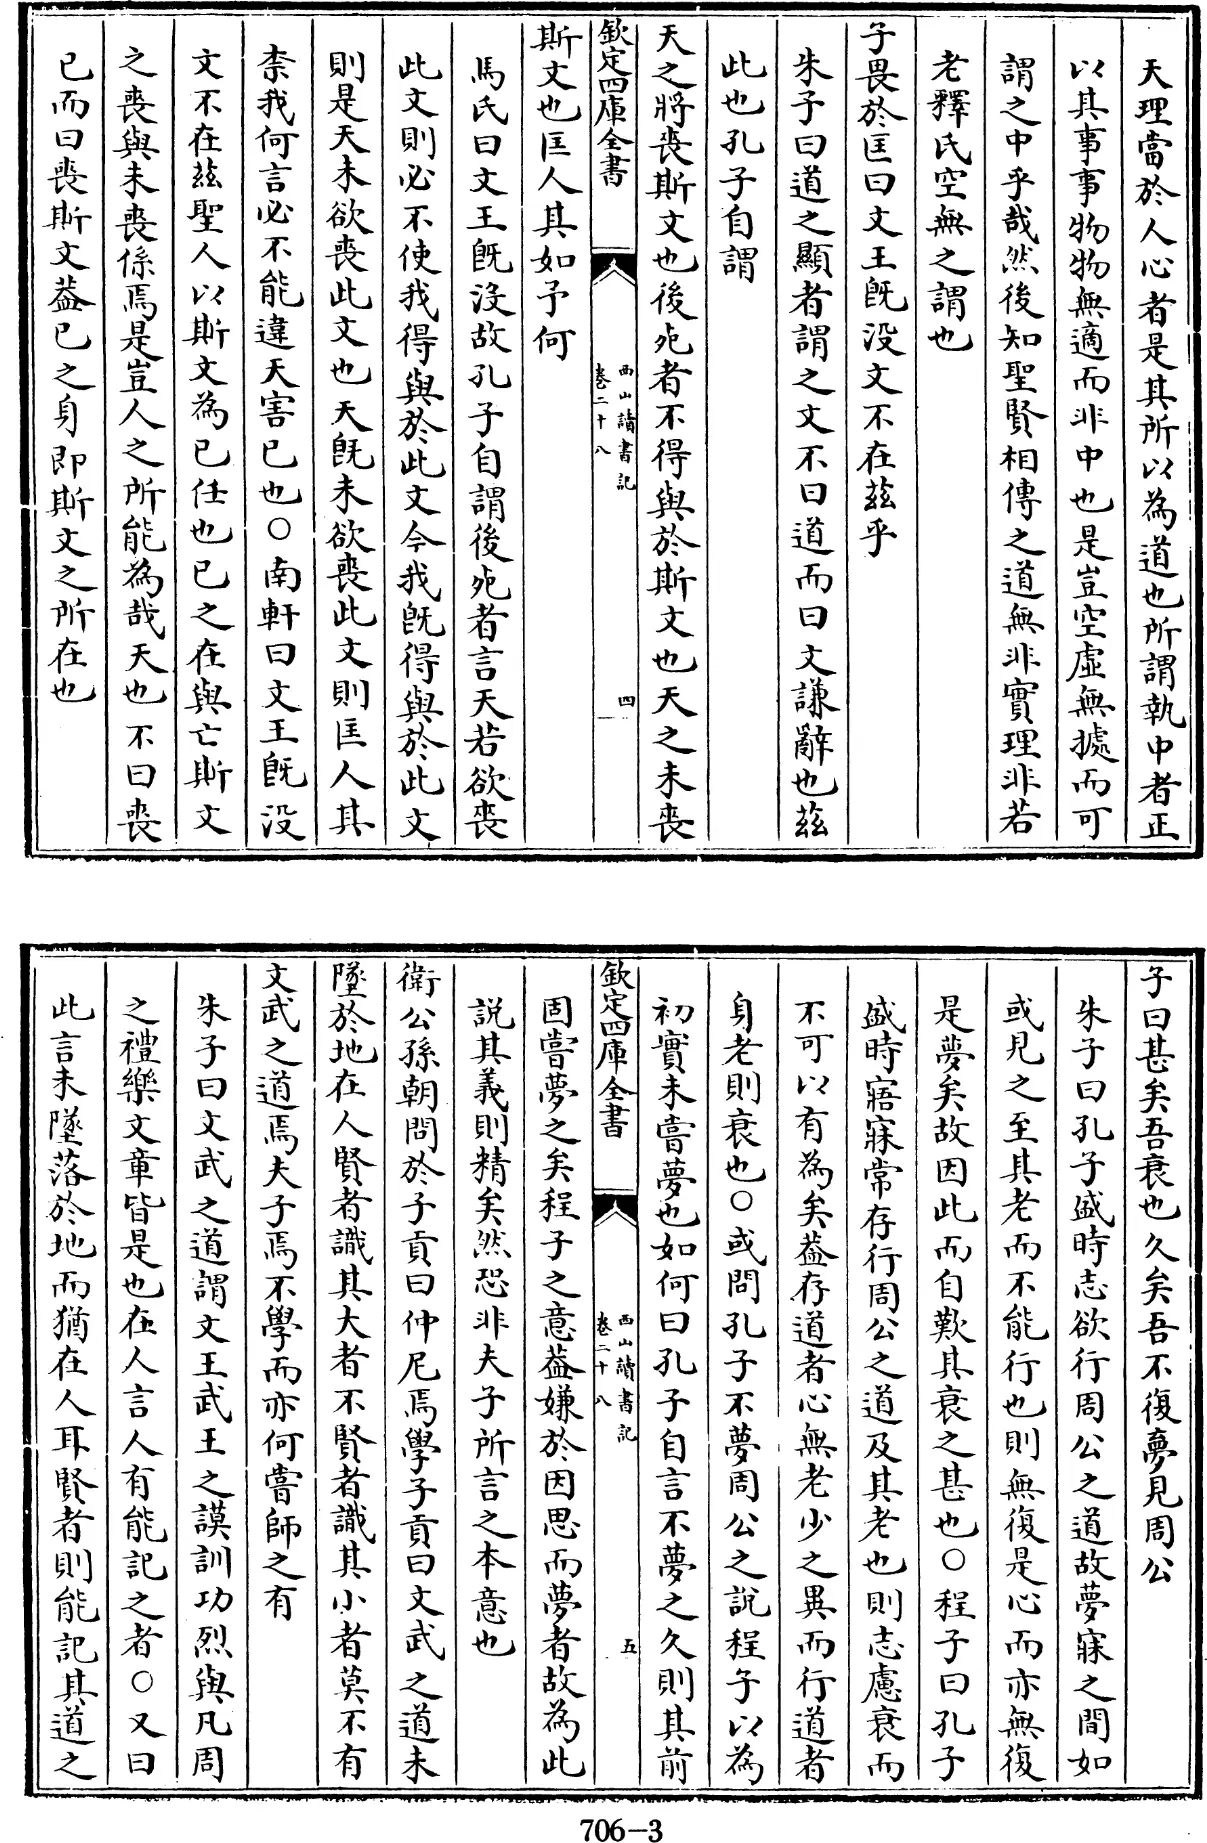 天理當於人心者是其所以為道也所謂執中者正
以其事事物物無適而非中也是豈空虛無據而可
謂之中乎哉然後知聖賢相傳之道無非實理非若
老釋氏空無之謂也
子畏於匡曰文王既没文不在兹乎
朱子曰道之顯者謂之文不曰道而曰文謙辭也兹
此也孔子自謂
天之將喪斯文也後死者不得與於斯文也天之未喪
欽定四庫全書
西山讀書記
卷二十八
四
斯文也匡人其如予何
馬氏曰文王既没故孔子自謂後死者言天若欲喪
此文則必不使我得與於此文今我既得與於此文
則是天未欲喪此文也天既未欲喪此文則匡人其
柰我何言必不能違天害已也○南軒曰文王既没
文不在兹聖人以斯文為已任也已之在與亡斯文
之喪與未喪係焉是豈人之所能為哉天也不曰喪
已而曰喪斯文葢已之身即斯文之所在也
子曰甚矣吾衰也久矣吾不復夢見周公
朱子曰孔子盛時志欲行周公之道故夢寐之間如
或見之至其老而不能行也則無復是心而亦無復
是夢矣故因此而自歎其衰之甚也○程子曰孔子
盛時寤寐常存行周公之道及其老也則志慮衰而
不可以有為矣葢存道者心無老少之異而行道者
身老則衰也○或問孔子不夢周公之説程子以為
初實未嘗夢也如何曰孔子自言不夢之久則其前
欽定四庫全書
西山讀書記
卷二十八
五
固嘗夢之矣程子之意葢嫌於因思而夢者故為此
説其義則精矣然恐非夫子所言之本意也
衛公孫朝問於子貢曰仲尼焉學子貢曰文武之道未
墜於地在人賢者識其大者不賢者識其小者莫不有
文武之道焉夫子焉不學而亦何嘗師之有
朱子曰文武之道謂文王武王之謨訓功烈與凡周
之禮樂文章皆是也在人言人有能記之者○又曰
此言未墜落於地而猶在人耳賢者則能記其道之
706-3